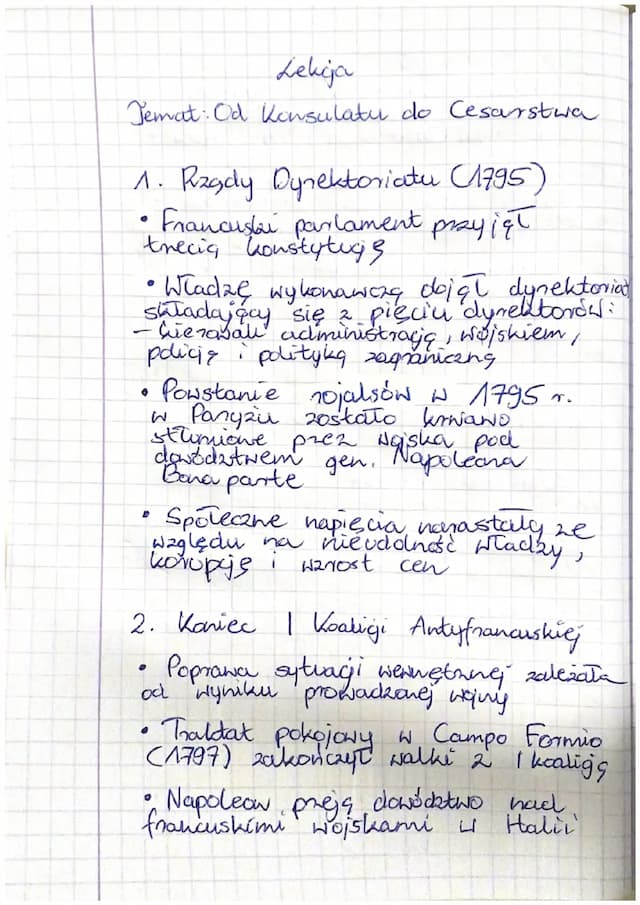 Lekcja
Temat: Od Konsulatu do Cesarstwa
1. Rządy Dyrektoriatu (1795)
• Francuski parlament przyjął
trzecią konstytucję
• Władzę wykonawczą objął dyrektoriat
składający się z pięciu dyrektorów:
- kierowali administracją, wojskiem,
policją i polityką zagraniczną
• Powstanie rojalsów w 1795 r.
w Paryżu zostało krwawo
stłumione przez wojska pod
dowództwem gen. Napoleona
Bonaparte
• Społeczne napięcia narastały ze
względu na nieudolność władzy,
korupcję i wzrost cen
2. Koniec I Koalicji Antyfrancuskiej
• Poprawa sytuacji wewnętrznej zależała
od wyniku prowadzonej wojny
• Traktat pokojowy w Campo Formio
(1797) zakończył walki z I koalicją
• Napoleon przeją dowództwo nad
francuskimi wojskami w Italii